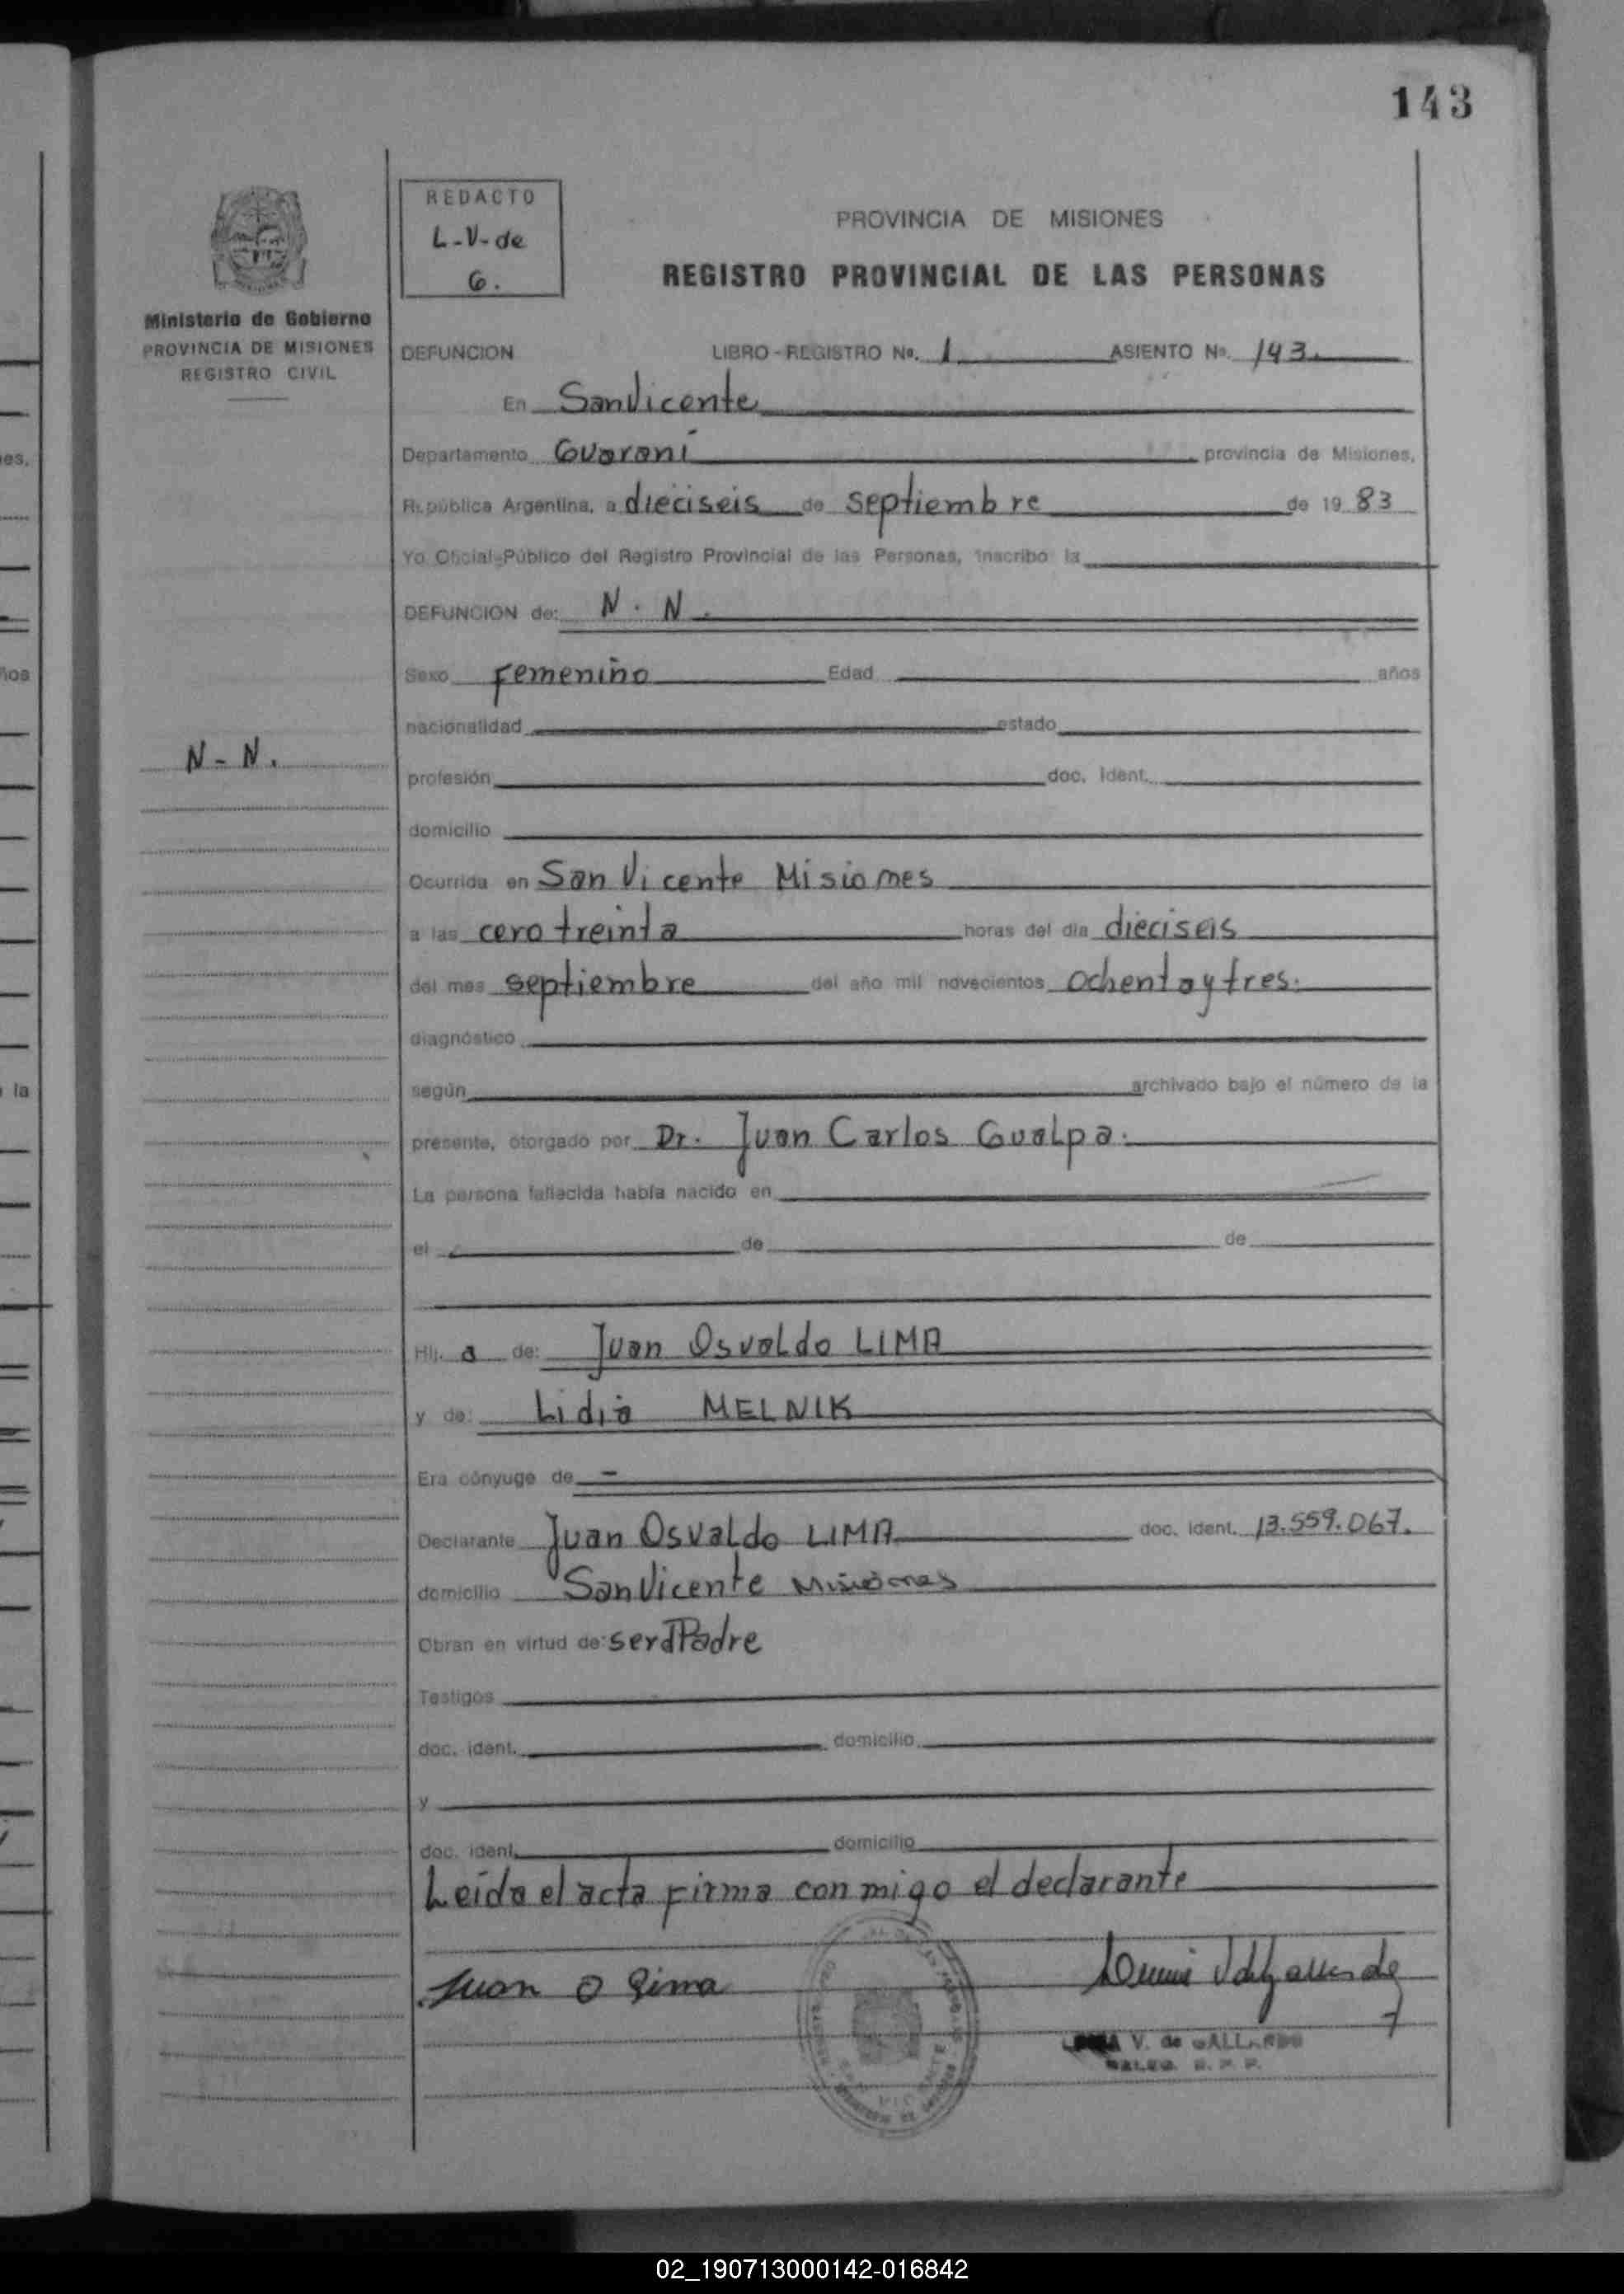 143
REDACTO
L-V-de
G.
PROVINCIA DE MISIONES
REGISTRO PROVINCIAL DE LAS PERSONAS
Ministerio de Gobierno
PROVINCIA DE MISIONES
REGISTRO CIVIL
DEFUNCION LIBRO-REGISTRO No. 1 ASIENTO No. 143
En San Vicente
Departamento Guaraní provincia de Misiones,
República Argentina, a dieciseis de septiembre de 19 83
Yo Oficial-Público del Registro Provincial de las Personas, inscribo la
DEFUNCION de: N. N.
Sexo Femenino Edad años
nacionalidad estado
N-N.
profesión doc. ident.
domicilio
Ocurrida en San Vicente Misiones
a las cero treinta horas del día dieciseis
del mes septiembre del año mil novecientos ochenta y tres.
diagnóstico
según archivado bajo el número de la
presente, otorgado por Dr. Juan Carlos Gualpa.
La persona fallecida había nacido en
el de de
Hij. a de: Juan Osvaldo LIMA
y de: Lidia MELNIK
Era cónyuge de -
Declarante Juan Osvaldo LIMA doc. ident. 13.559.067.
domicilio San Vicente Misiones
Obran en virtud de: ser el Padre
Testigos
doc. ident. domicilio
y
doc. ident. domicilio
Leída el acta firma conmigo el declarante
Juan O Lima
V. de GALLARDO
es.
ños
la
02_190713000142-016842